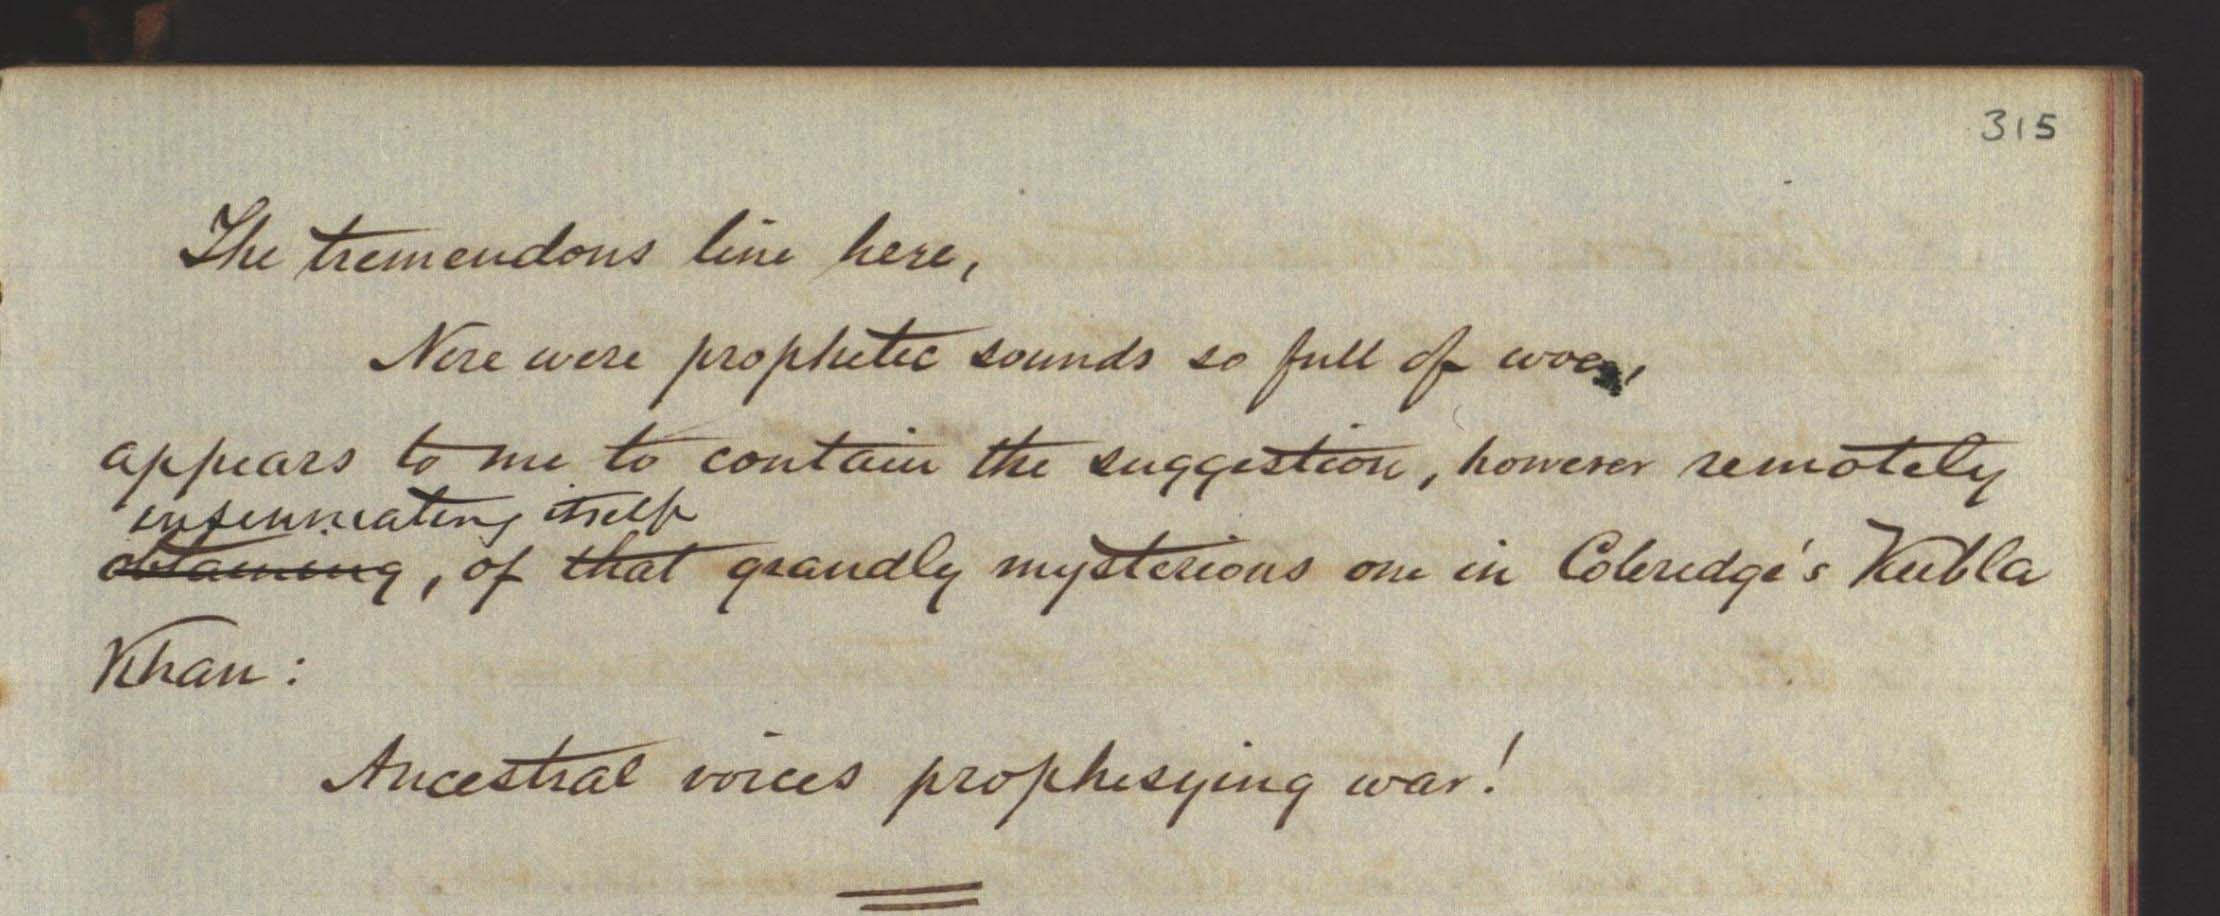 315
The tremendous line here,
Nere were prophetic sounds so full of woe,
appears to me to contain the suggestion, however remotely
insinuating itself
obtaining, of that grandly mysterious one in Coleridge's Kubla
Khan:
Ancestral voices prophesying war!